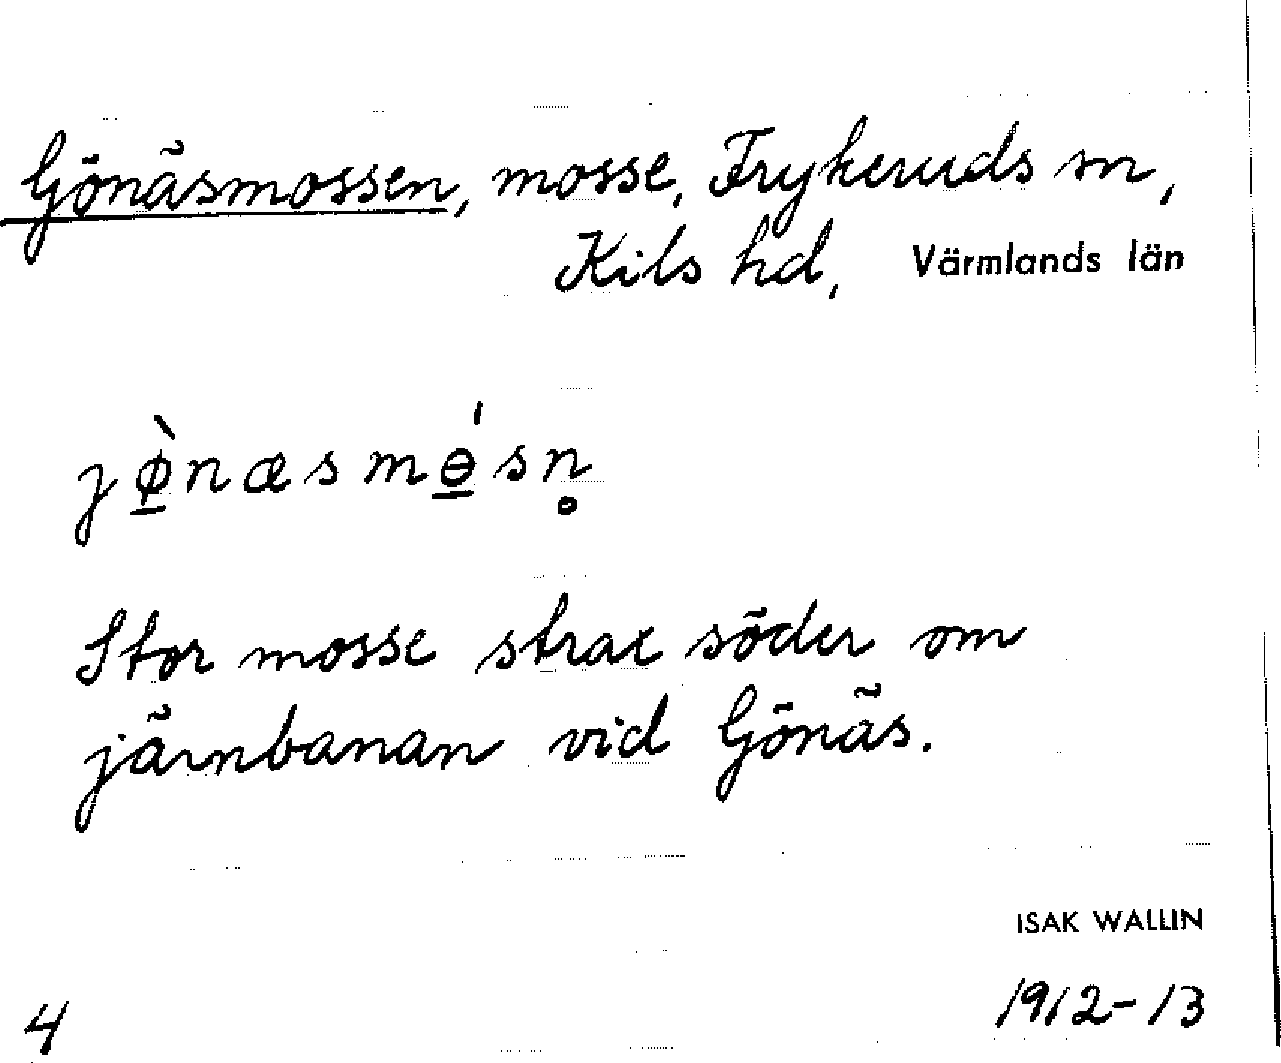 Gönäsmossen, mosse, Frykeruds sn,
Kils hd, Värmlands län
jø̱̀næsmɵ̱́sn̥
Stor mosse strax söder om
järnbanan vid Gönäs.
ISAK WALLIN
1912-13
4